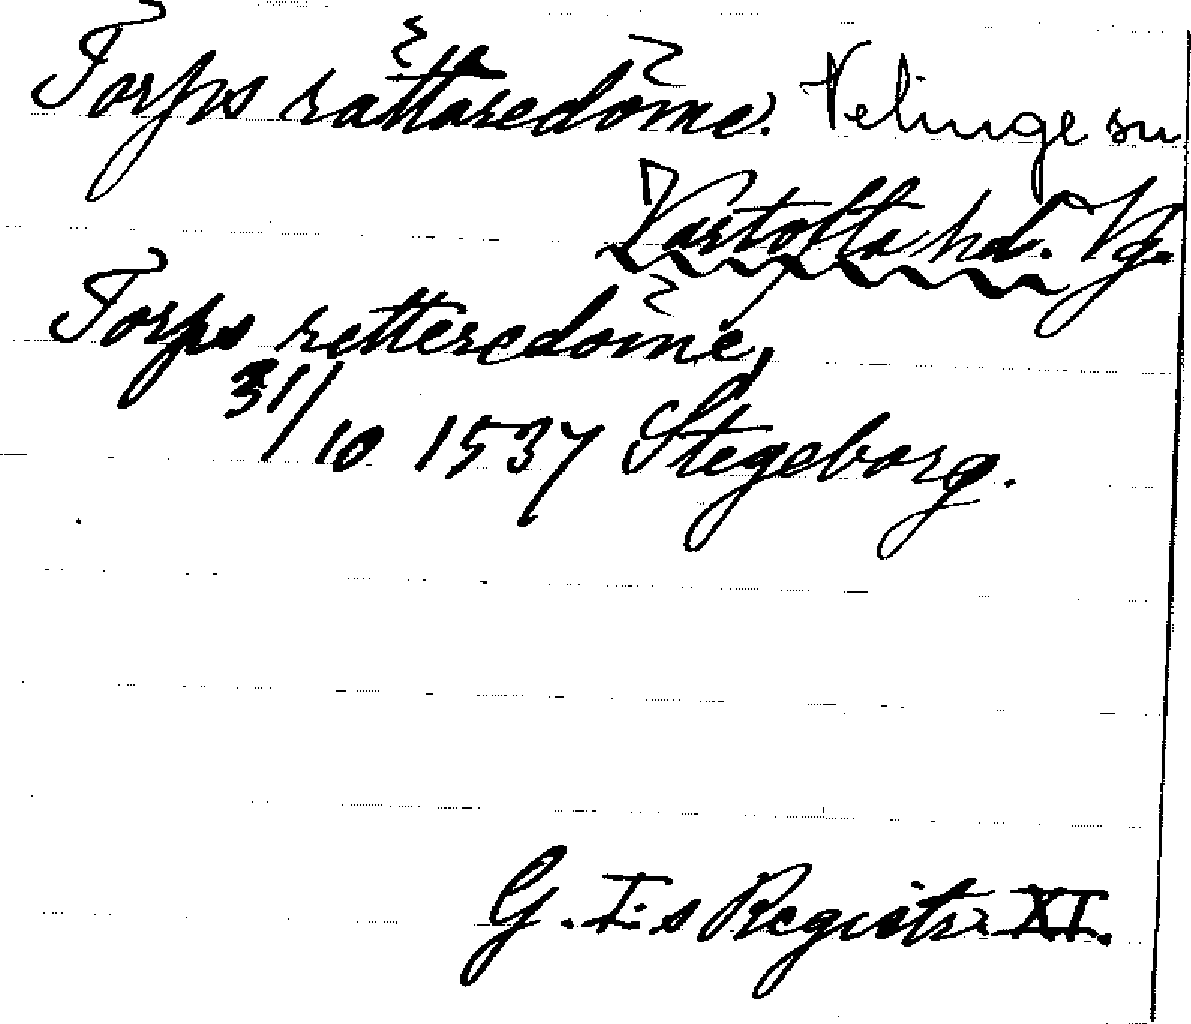 Torps rättaredöme. Velinge sn
Vartofta hd. Vg.
Torps rettersdöme,
31/10 1537 Stegeborg.
G. I:s Registr. XI.